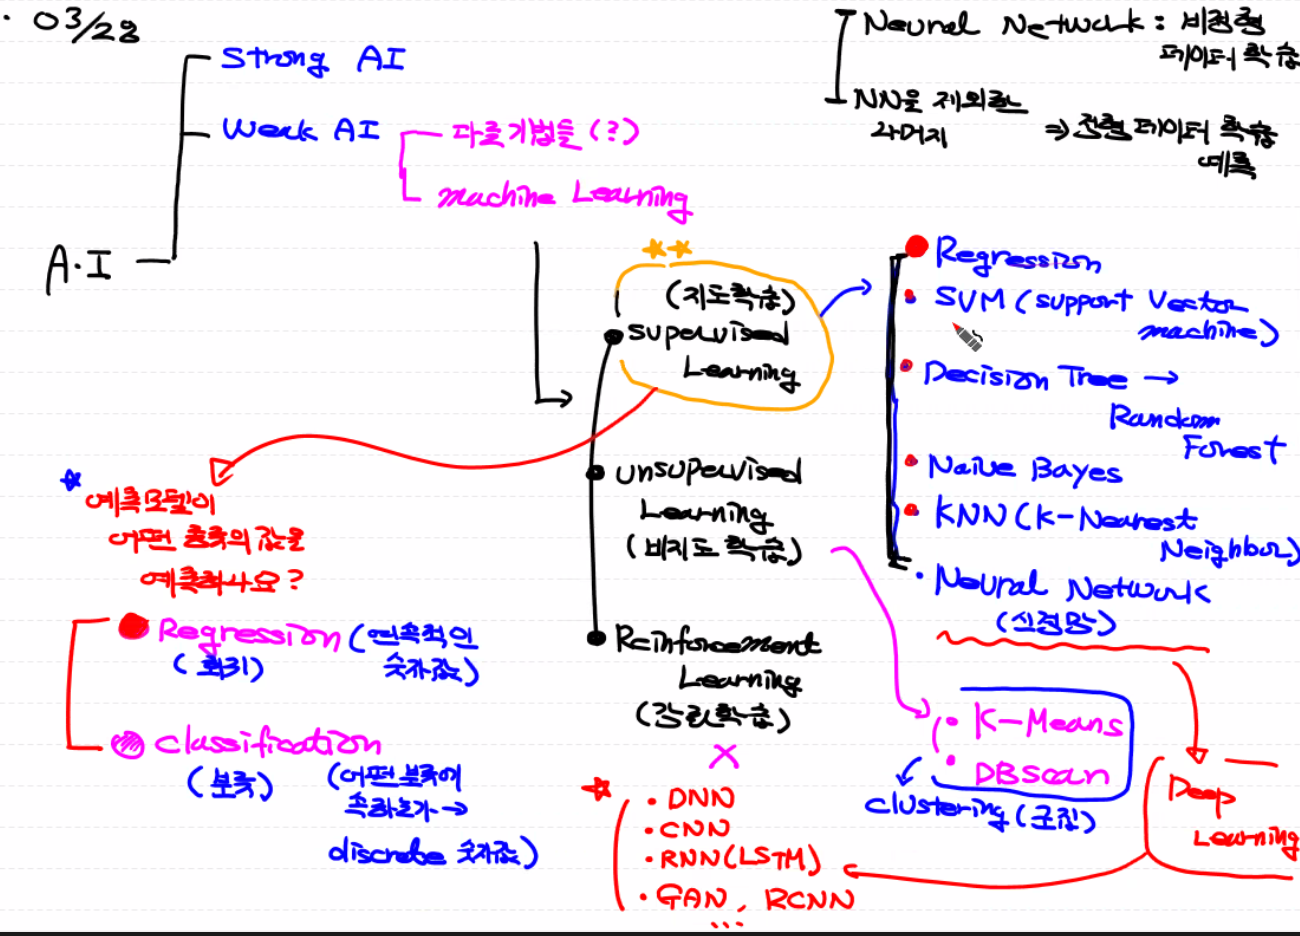 03/28
Strong AI
Weak AI
다른기법들 (?)
machine Learning
A.I
Neural Network : 비정형
데이터 학습
NN을 제외한
나머지
⇒ 정형 데이터 학습
예측
(지도학습)
supervised
Learning
unsupervised
Learning
(비지도 학습)
Reinforcement
Learning
(강화학습)
X
• Regression
• SVM (support Vector
machine)
• Decision Tree →
Random
Forest
• Naive Bayes
• KNN (K-Nearest
Neighbor)
• Neural Network
(신경망)
예측모델이
어떤 종류의 값을
예측하나요?
Regression (연속적인
(회귀) 숫자값)
classification
(분류) (어떤 분류에
속하는가 →
discrete 숫자값)
• K-Means
• DBscan
clustering (군집)
Deep
Learning
• DNN
• CNN
• RNN (LSTM)
• GAN, RCNN
...